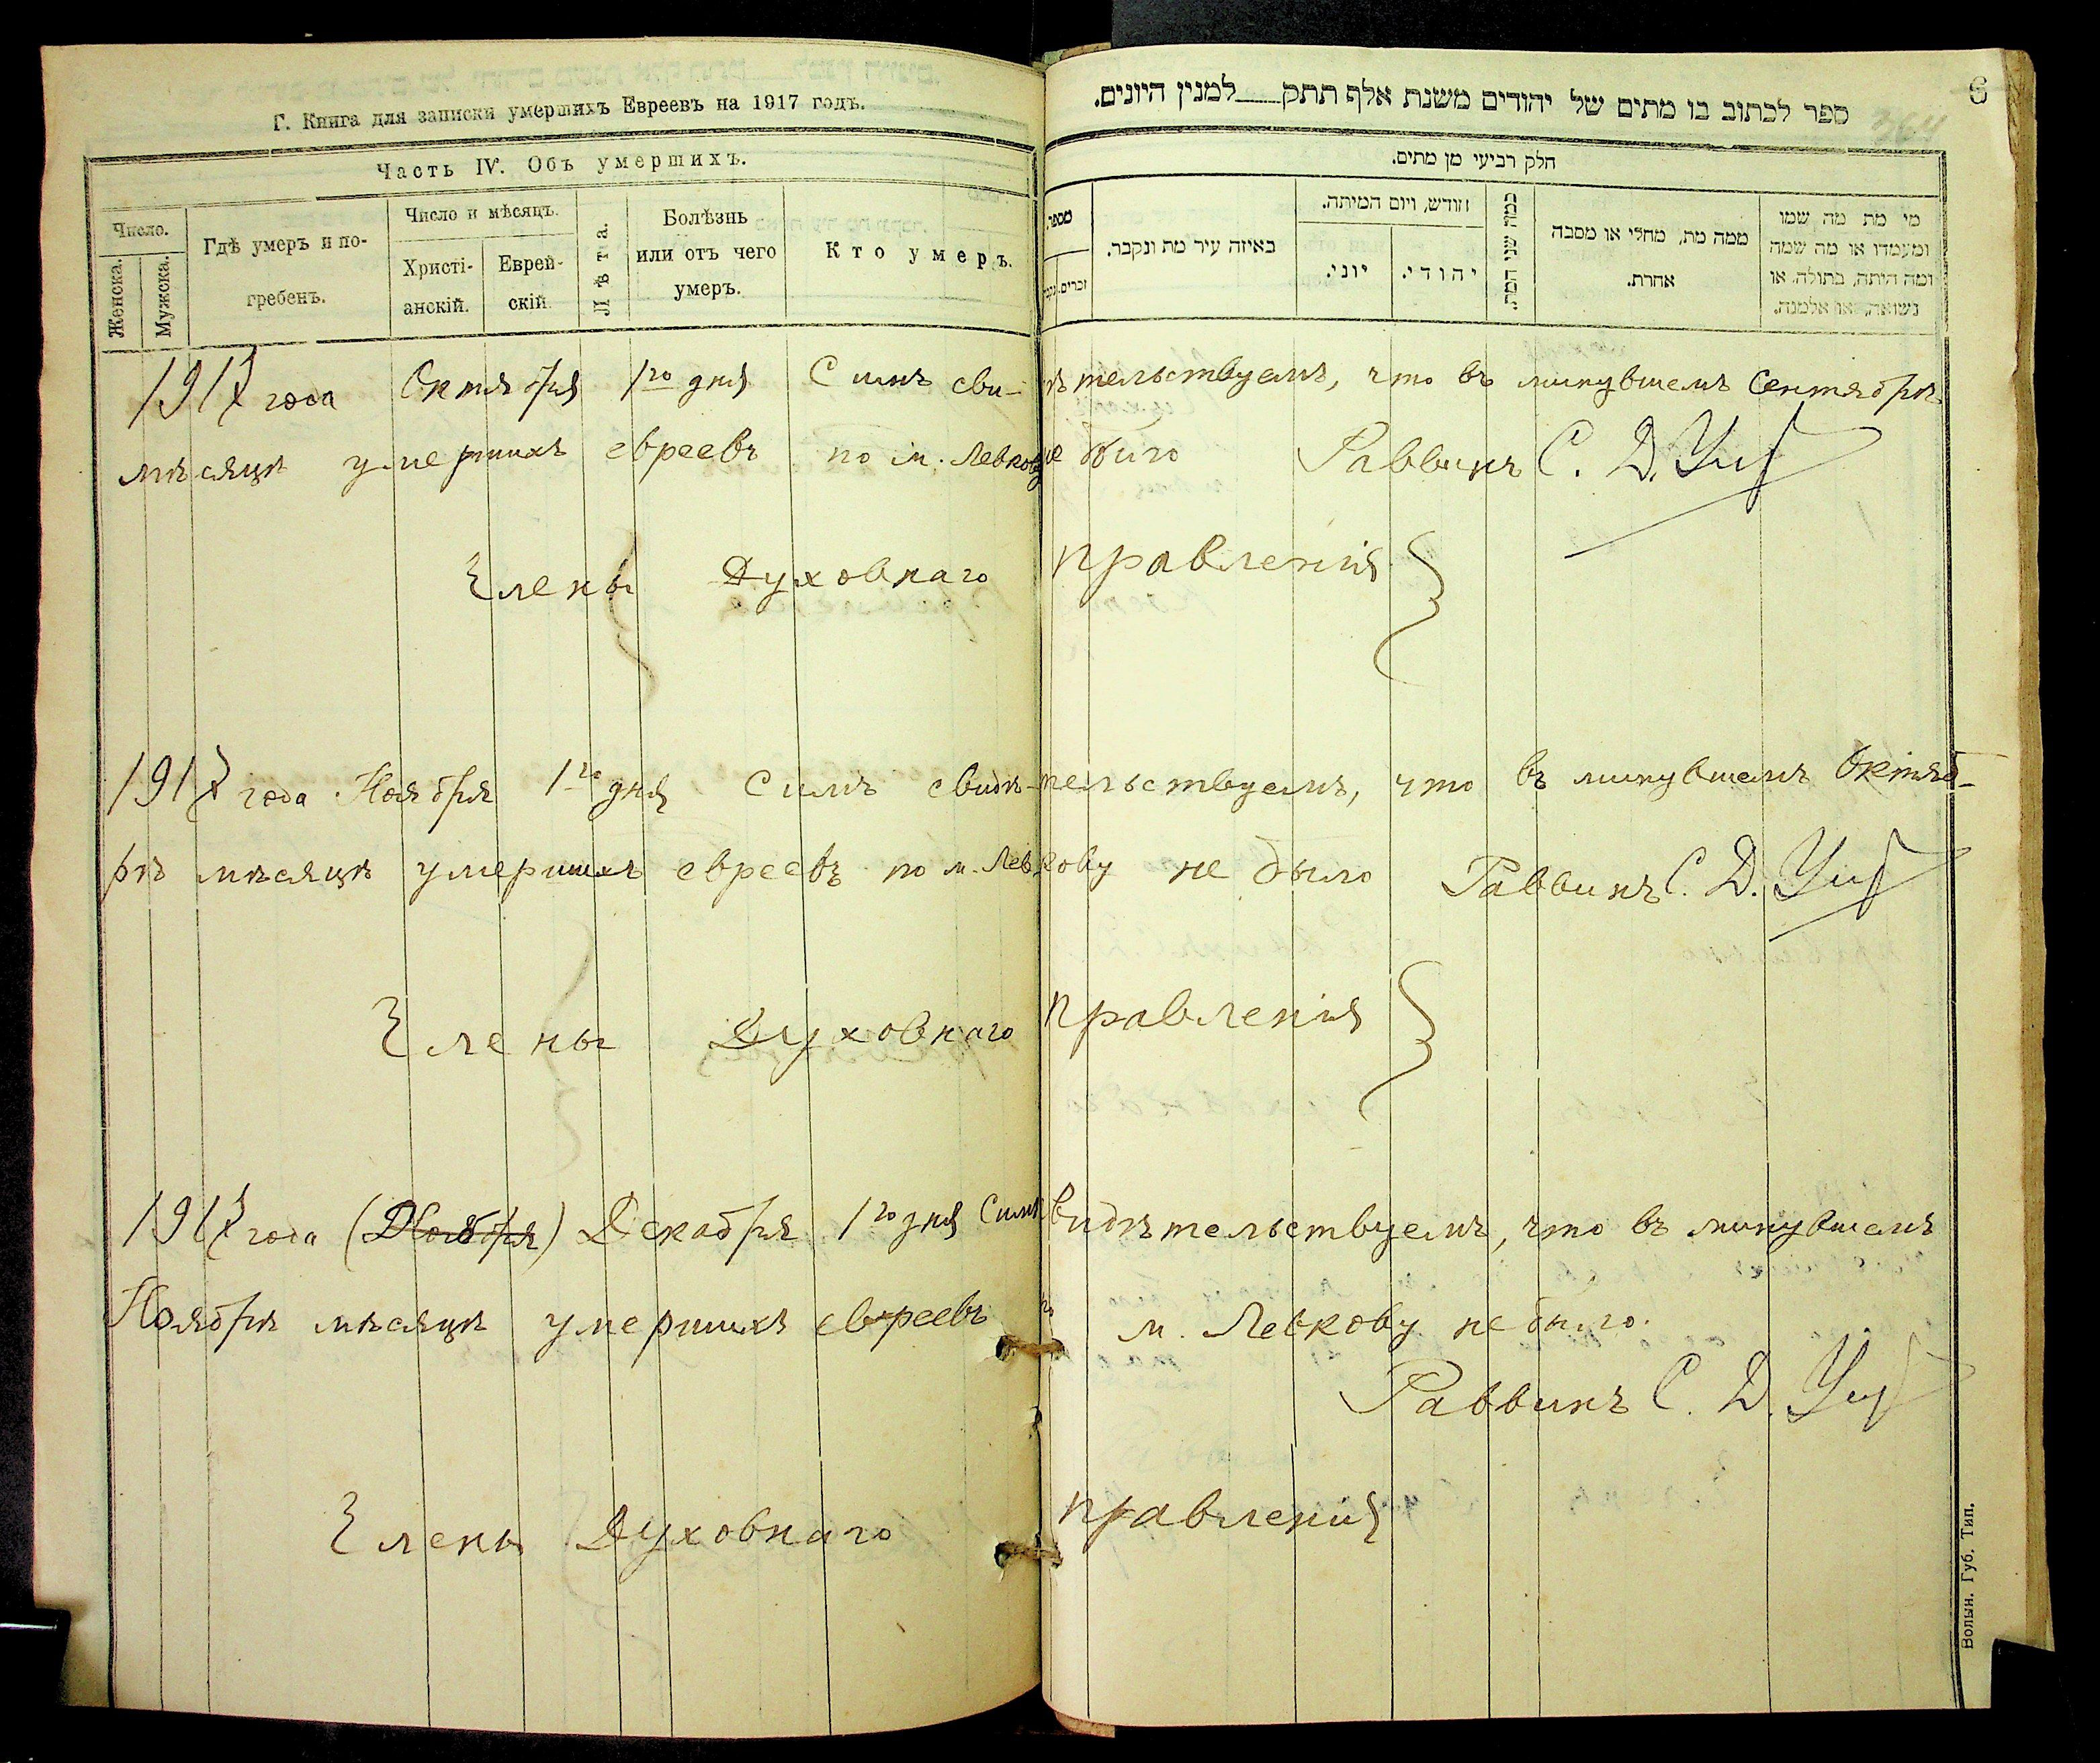 Г. Книга для записки умершихъ Евреевъ на 1917 годъ.
Часть IV. Объ умершихъ.
Число.
Женска.
Мужска.
Гдѣ умеръ и по-
гребенъ.
Число и мѣсяцъ.
Христі-
анскій.
Еврей-
скій
Лѣта.
Болѣзнь
или отъ чего
умеръ.
Кто умеръ.
ספר לכתוב בו מתים של יהודים משנת אלף תתק למנין היונים.
6
364
חלק רביעי מן מתים.
מספר
זכרים
באיזה עיר מת ונקבר.
חודש, ויום המיתה.
יוני.
יהודי.
כמה שני המת.
ממה מת, מחלי או מסבה
אחרת.
מי מת מה שמו
ומעמדו או מה שמה
ומה היתה, בתולה, או
נשואה, או אלמנה.
1917 года Октября 1го дня Симъ свидѣтельствуемъ, что въ минувшемъ Сентябрѣ
мѣсяцѣ умершихъ евреевъ по м. Левкову не было Раввинъ С. Д.
Члены Духовнаго правленія
1917 года Ноября 1го дня Симъ свидѣтельствуемъ, что въ минувшемъ Октяб-
рѣ мѣсяцѣ умершихъ евреевъ по м. Левкову не было Раввинъ С. Д.
Члены Духовнаго правленія
1917 года (Ноября) Декабря 1го дня Симъ свидѣтельствуемъ, что въ минувшемъ
Ноябрѣ мѣсяцѣ умершихъ евреевъ по м. Левкову не было.
Раввинъ С. Д.
Члены Духовнаго правленія
Волын. Губ. Тип.